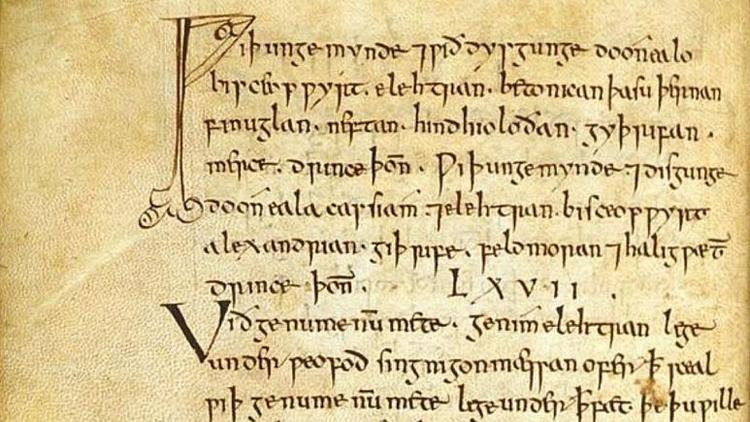 Ƿiþ ungemynde ⁊ ƿið dysgunge do on ealo
bisceopƿyrt. elehtran. betonican þa suþernan
finuglan. neftan. hindhioloðan. gyþrifan.
merice. drince þoñ. Ƿiþ ungemynde ⁊ disgunge
do on eala cassiam ⁊ elehtran. bisceopƿyrt
alexandrian. giþrife. felomoran ⁊ halig ƿæt̄
drince þoñ. LXVII.
Ƿið genumenū mete. genim elehtran lege
under ƿeofod sing nigon mæssan ofer ꝥ sceal
ƿiþ genumenū mete lege under ꝥ fæt. þe þu ƿille